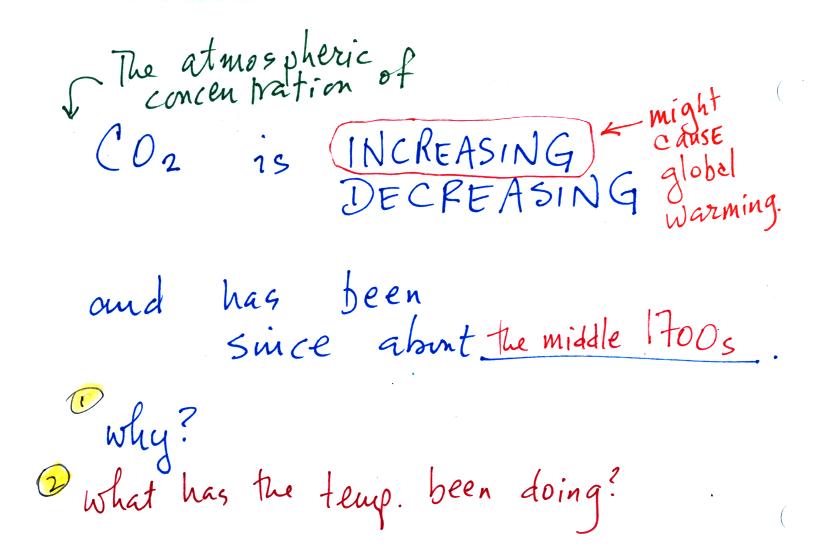 The atmospheric
concentration of
CO2 is INCREASING
DECREASING
might
cause
global
warming.
and has been
since about the middle 1700s.
1
why?
2 what has the temp. been doing?